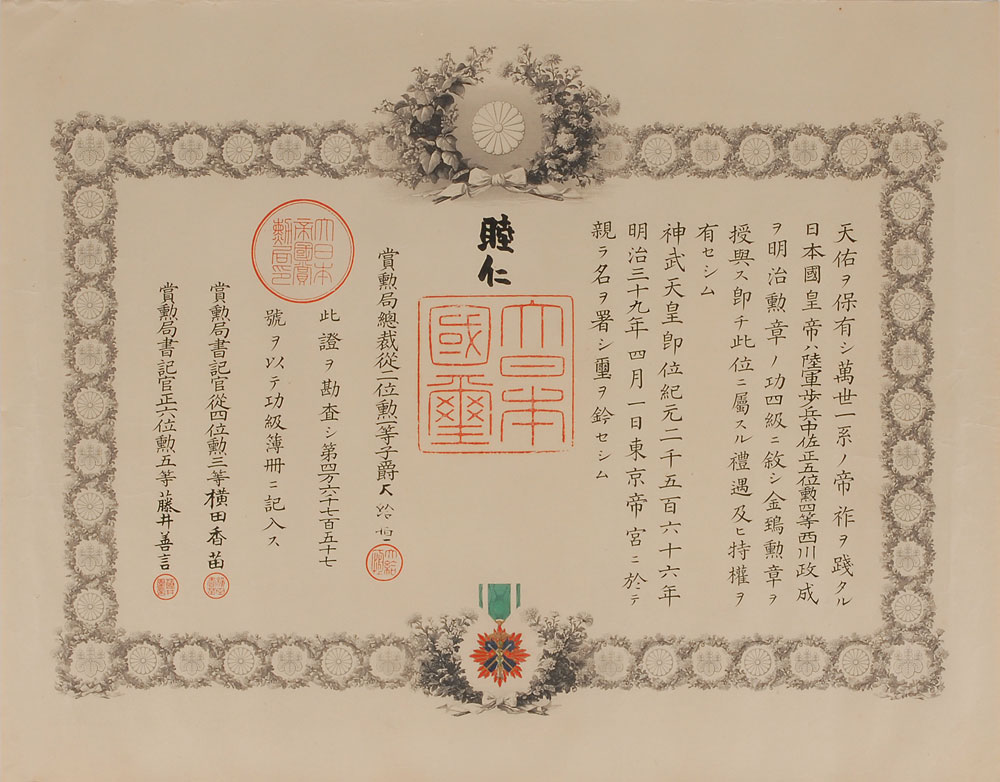 天佑ヲ保有シ萬世一系ノ帝祚ヲ踐タル
日本國皇帝ハ陸軍歩兵中佐正五位勲四等西川政成
ヲ明治勲章ノ功四級ニ敘シ金鵄勲章ヲ
授與ス卽チ此位ニ屬スル禮遇及ヒ特權ヲ
有セシム
神武天皇卽位紀元二千五百六十六年
明治三十九年四月一日東京帝宮ニ於テ
親ラ名ヲ署シ璽ヲ鈐セシム
睦仁
大日本國璽
賞勲局總裁從二位勲一等子爵大給恒
大日本帝國賞勲局印
此證ヲ勘査シ第四万六千七百五十七
號ヲ以テ功級簿冊ニ記入ス
賞勲局書記官從四位勲三等横田香苗
賞勲局書記官正六位勲五等藤井善言